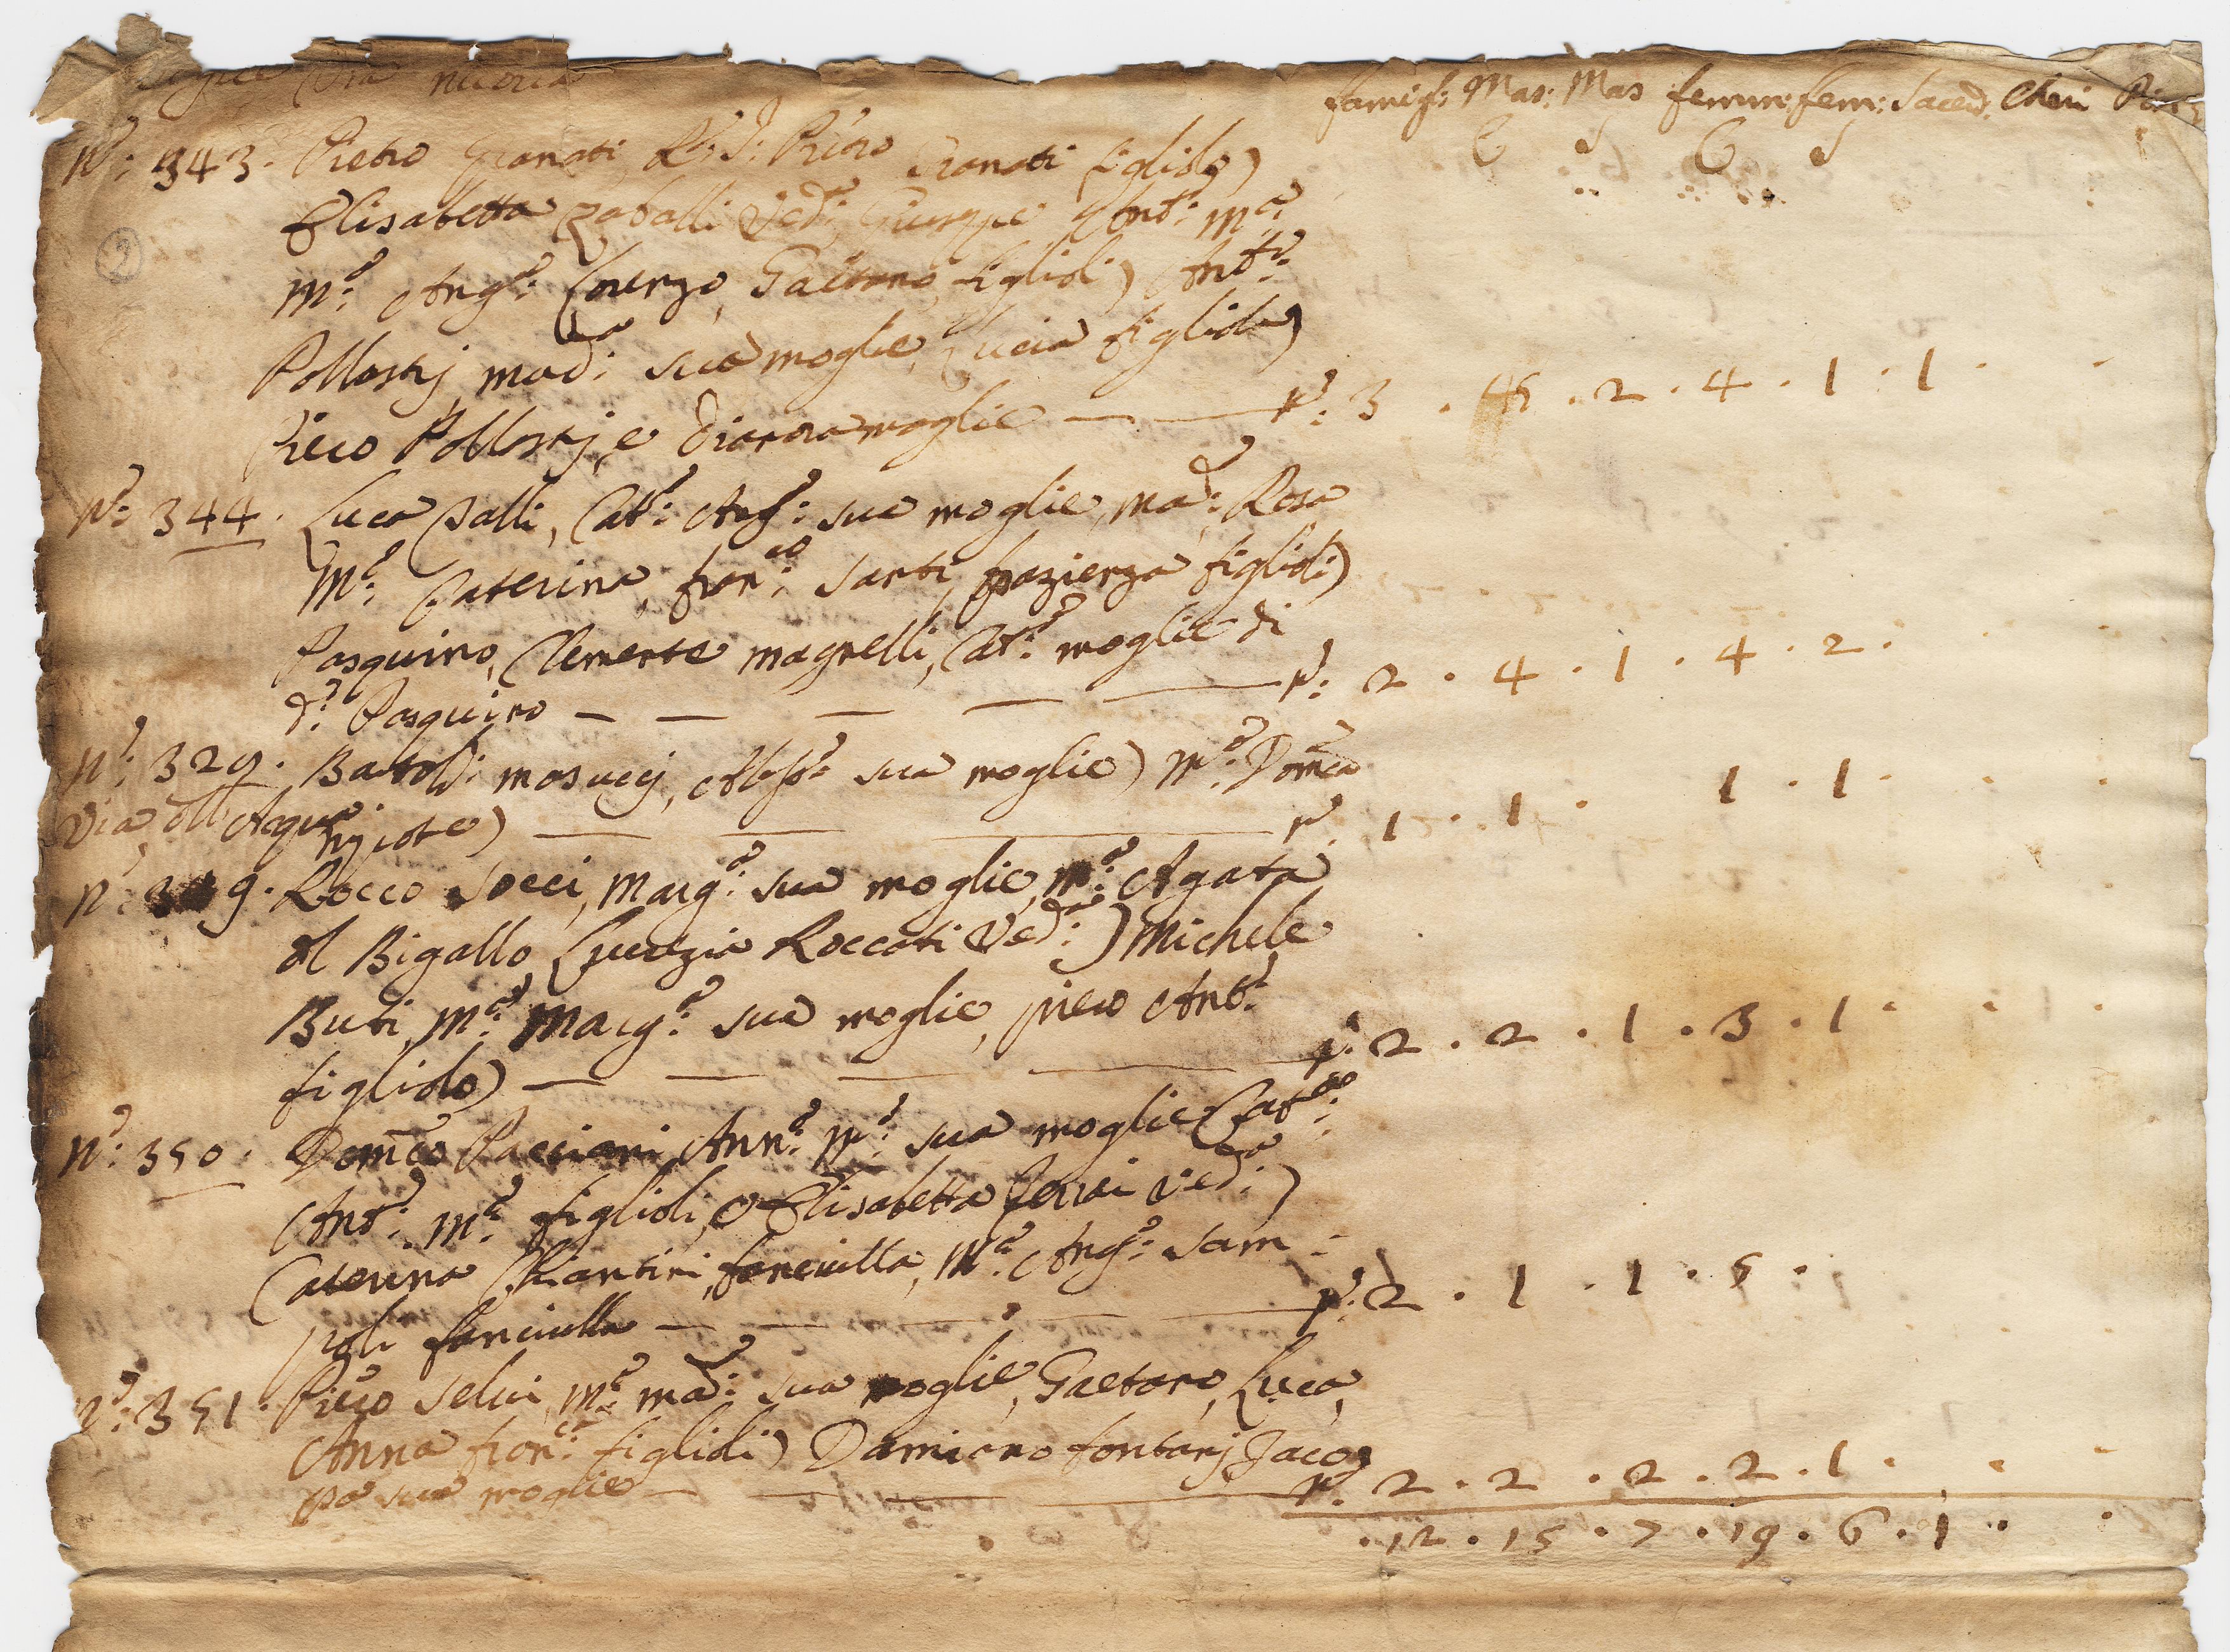 Via nuova
famigl: Mas: Mas femm: fem: Saced: Cheri
C S C S
N.o: 343. Pietro Granati, R: P: Pietro Granati figliolo)
Elisabetta Ved.a: Giuseppe Ant.o: M.a:
M.a: Ang.a: Lorenzo, Gaetano, figlioli) Ant.o:
Pollastrj, mad.a: sua moglie, Lucia figliola)
Piero Pollastrj, e Dianora moglie — — N.o: 3 . 45 . 2 . 4 . 1 . 1 .
N.o: 344. Luca Galli, Cat.a: Ang.a: sua moglie, mad.a: Rosa
M.a: Caterina, fran.co: Santi, pazienza figlioli)
Pasquino, Clemente magnelli, Cat.a: moglie di
d.o: Pasquino — — — — — N.o: 2 . 4 . 1 . 4 . 2 .
N.o: 329. Bartol: masucij, Aless.a: sua moglie) M.a: Dom.ca
Via, dll Acqua nipote) — — — N.o: 1 . 1 . 1 . 1 .
N.o: 349. Rocco Socci, Marg.a: sua moglie, M.a: Agata
dl Bigallo, Lucrezia Roccati Ved.a:) Michele
Buti, M.a: Marg.a: sua moglie, piero Ant.o:
figliolo) — — — — N.o: 2 . 2 . 1 . 3 . 1 .
N.o: 350. Dom.co Pacciani, Ann.a: M.a: sua moglie Cat.a:
Ant.a: M.a: figlioli, e Elisabetta Ved.a:)
Caterina Chiantini, fanciulla, M.a: Ang.a: Sam=
poli fanciulla — — — — N.o: 2 . 1 . 1 . 5 .
N.o: 351. Piero Selvi, M.a: mad.a: sua moglie, Gaetano, Luca,
Anna, fran.co: figlioli) Damiano fontanj, Jaco=
pa sua moglie — — — — N.o: 2 . 2 . 2 . 2 . 1 .
. 12 . 15 . 7 . 19 . 6 . 1 .
2